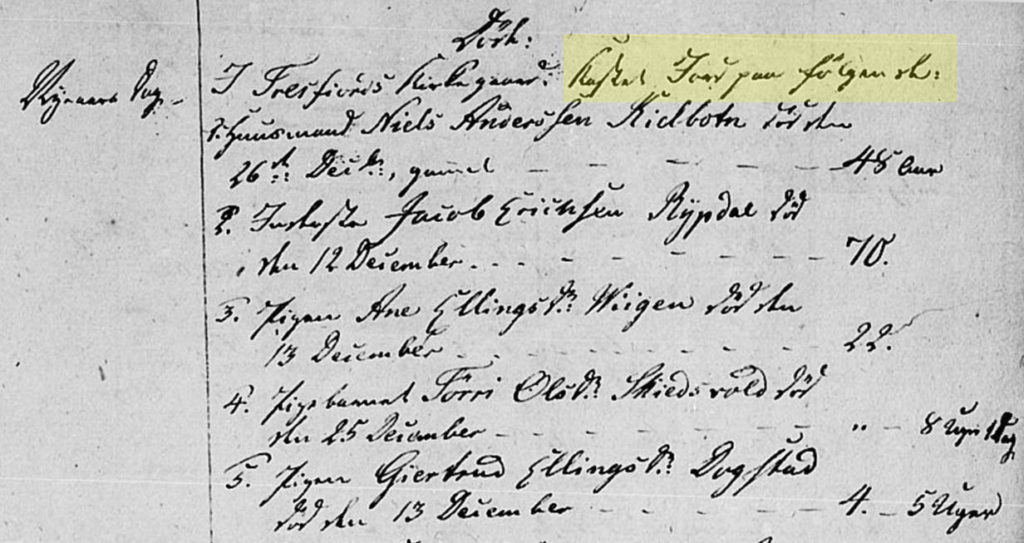 Död:
Nyeaars Dag - I Fresfiords Kirkegaard. Kastet Jord paa følgende:
1. Huusmand Niels Anderssen Kidlbotn död den
26de Decbr:, gammel - - - 48 Aar
2. Inderste Jacob Erichsen Rypdal död
den 12 December. - - - 70.
3. Pigen Ane Ellingsdr: Wiigen död den
13 December - - - 22.
4. Pigebarnet Törri Olsdr: Skiedsvold död
den 25 December - - - " - 8 Uger 1 Dag
5. Pigen Giertrud Ellingsdr: Dogstad
död den 13 December - - - 4. - 5 Uger